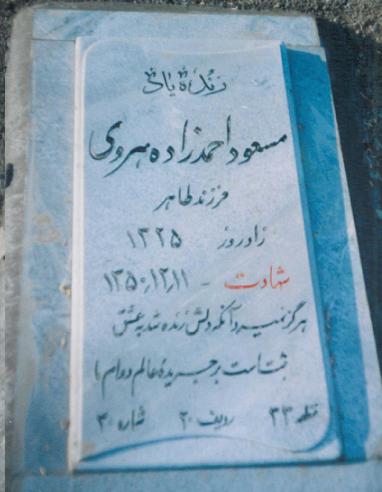 زنده یاد
مسعود احمدزاده هروی
فرزند طاهر
زادروز ۱۳۲۵
شهادت - ۱۳۵۰،۱۲،۱۱
هرگز نمیرد آنکه دلش زنده شد به عشق
ثبت است بر جریدهٔ عالم دوام ما
قطعه ۳۳ ردیف ۲۰ شماره ۳۰